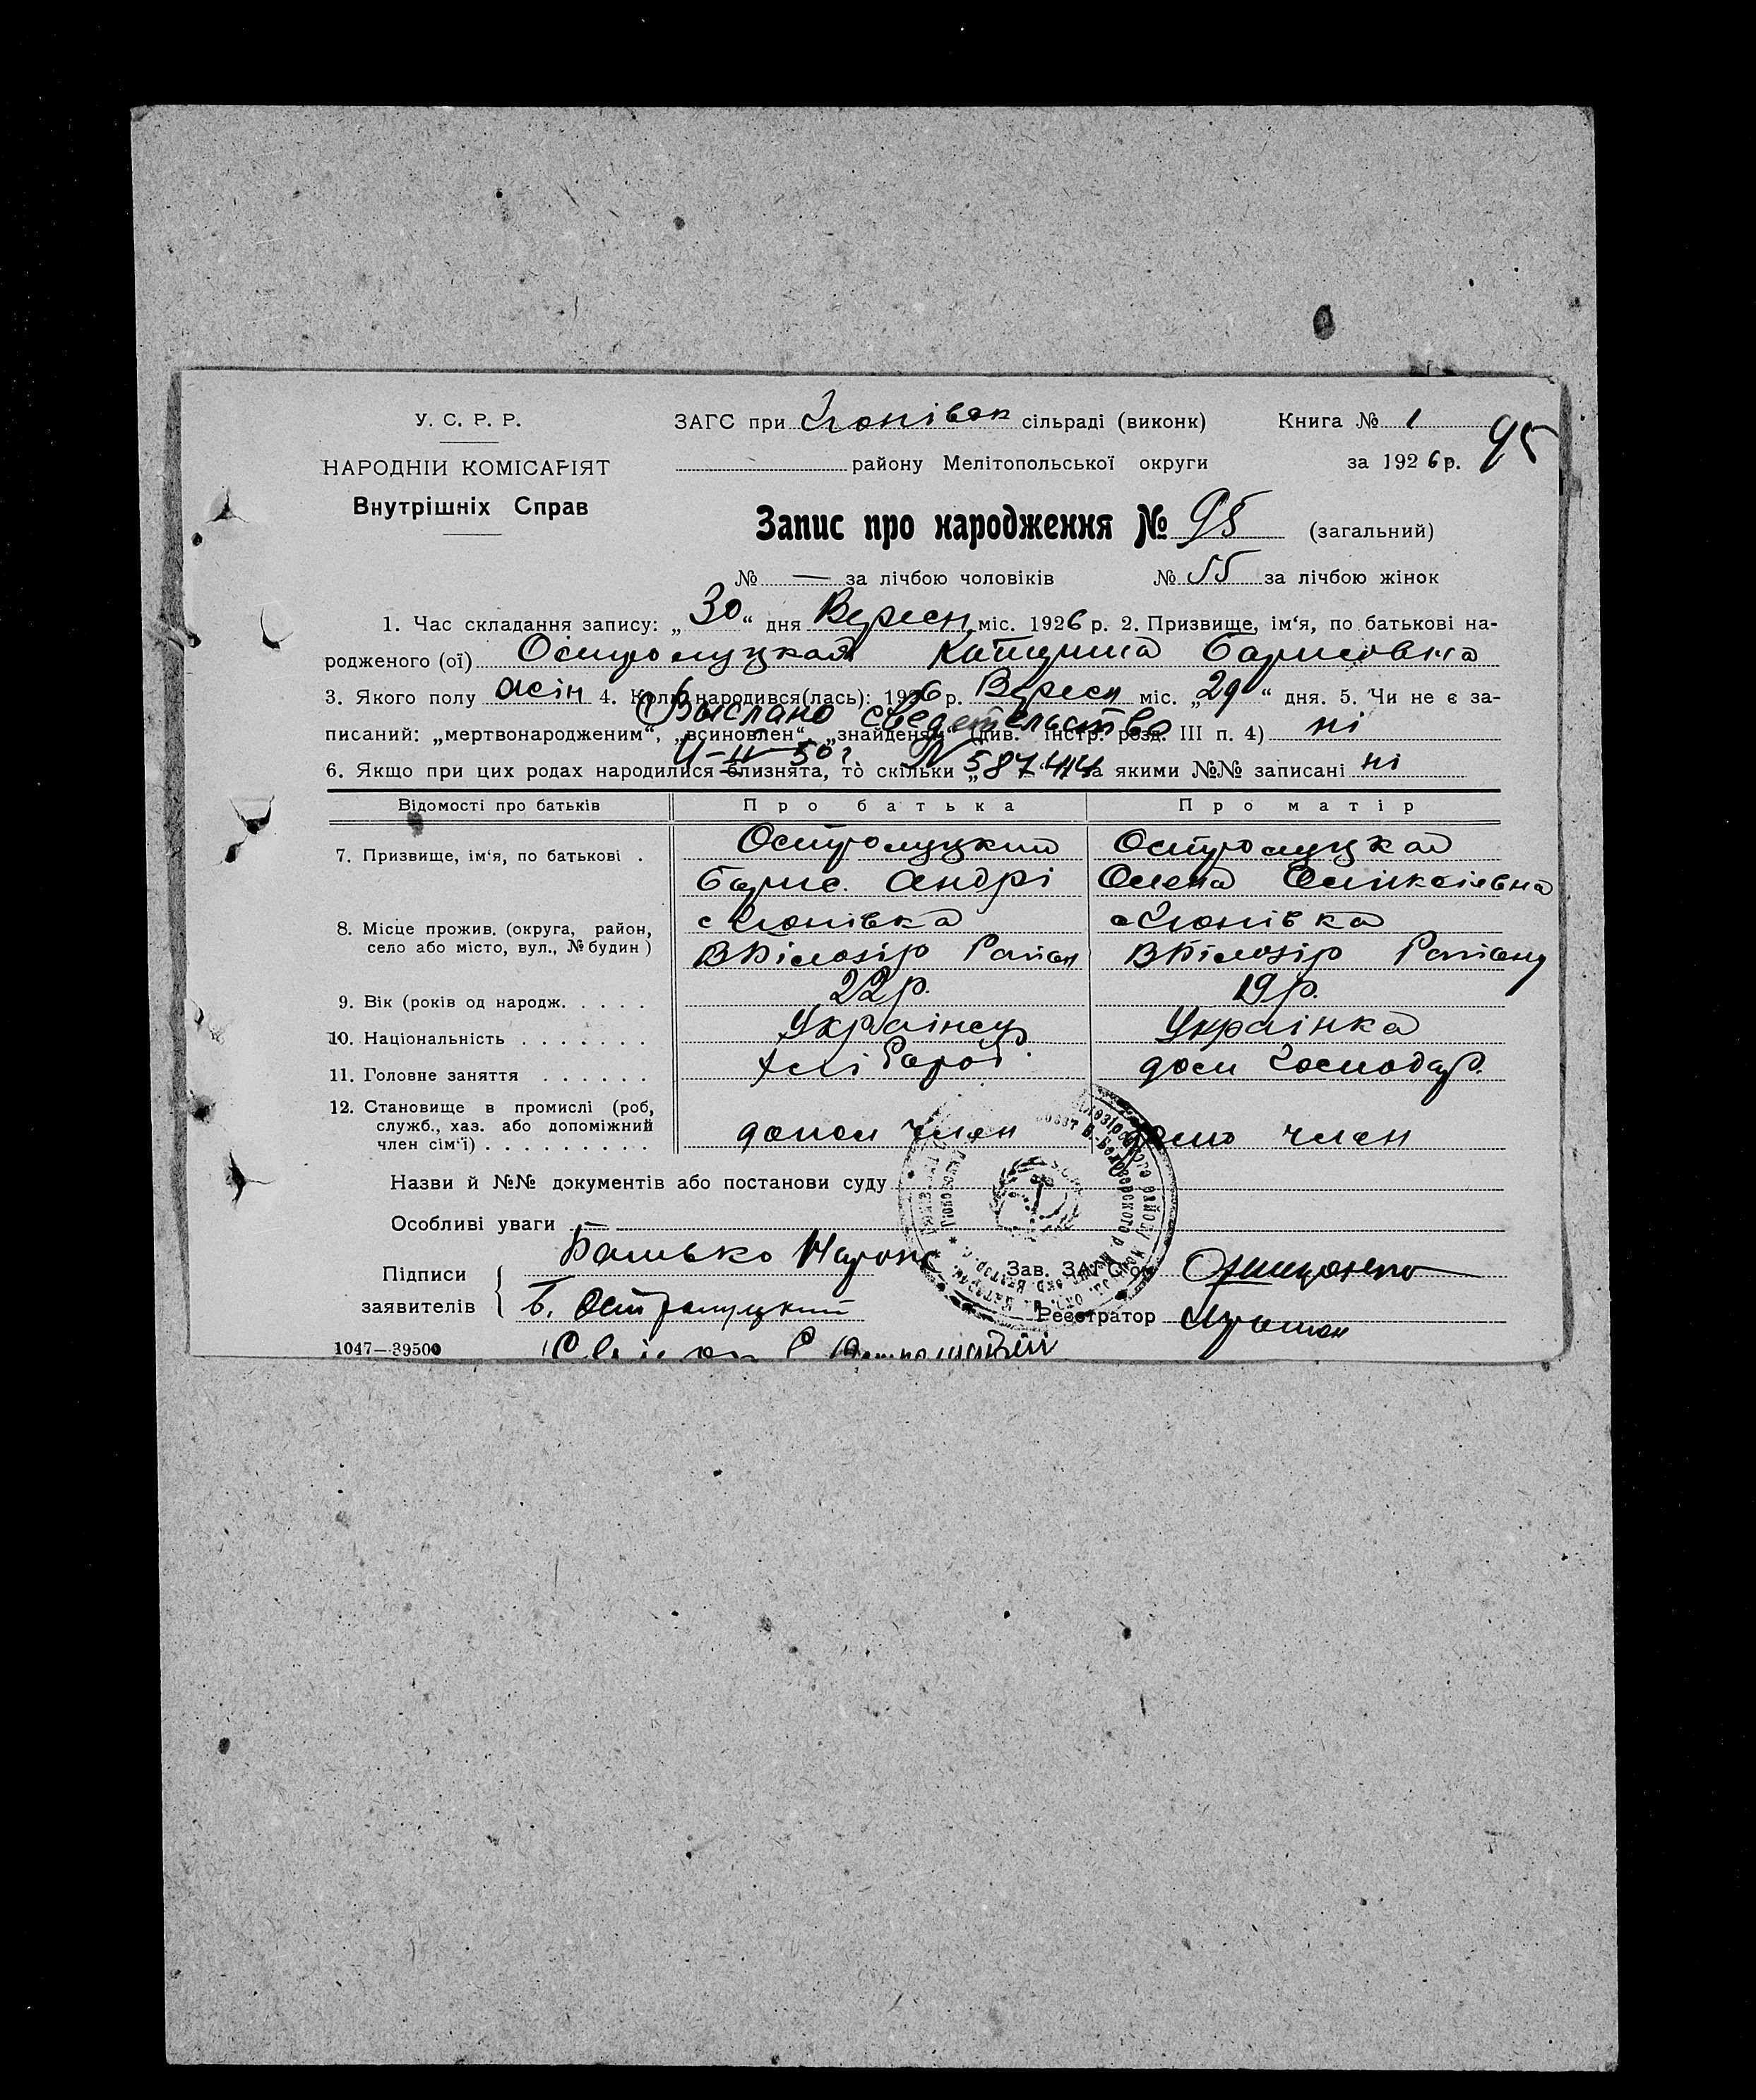 У. С. Р. Р.
НАРОДНІЙ КОМІСАРІЯТ
Внутрішніх Справ
ЗАГС при Гюнівск сільраді (виконк) Книга № 1
95
району Мелітопольської округи за 1926 р.
Запис про народження № 95 (загальний)
№ — за лічбою чоловіків № 55 за лічбою жінок
1. Час складання запису: „30“ дня Вересн міс. 1926 р. 2. Призвище, ім‘я, по батькові на-
родженого (ої) Остролуцкая Катерина Борисовна
3. Якого полу жін 4. Коли народився(лась): 1926 р. Вересн міс. „29“ дня. 5. Чи не є за-
Выслано свидетельство
писаний: „мертвонародженим“, „всиновлен“, „знайденим“ (див. інстр. розд. III п. 4) ні
50 г. N 587414
6. Якщо при цих родах народилися близнята, то скільки „ за якими №№ записані ні
Відомості про батьків Про батька Про матір
7. Призвище, ім‘я, по батькові . Остролуцкий Остролуцкая
Борис Андрі Олена Олексіевна
8. Місце прожив. (округа, район, с Гюнівка с Гюнівка
село або місто, вул., № будин) ВБілозір Район ВБілозір Району
9. Вік (років од народж. . . . . 22 р. 19 р.
10. Національність . . . . . . . Українец Українка
11. Головне заняття . . . . . . хлі Пароб. дом Господар.
12. Становище в промислі (роб,
служб., хаз. або допоміжний
член сім‘ї) . . . . . . . . . допом член допо член
Назви й №№ документів або постанови суду
Особливі уваги —
Батько
Підписи
заявителів
Б. Остролуцкий
Зав. ЗАГС‘ом
Реєстратор
1047—39500